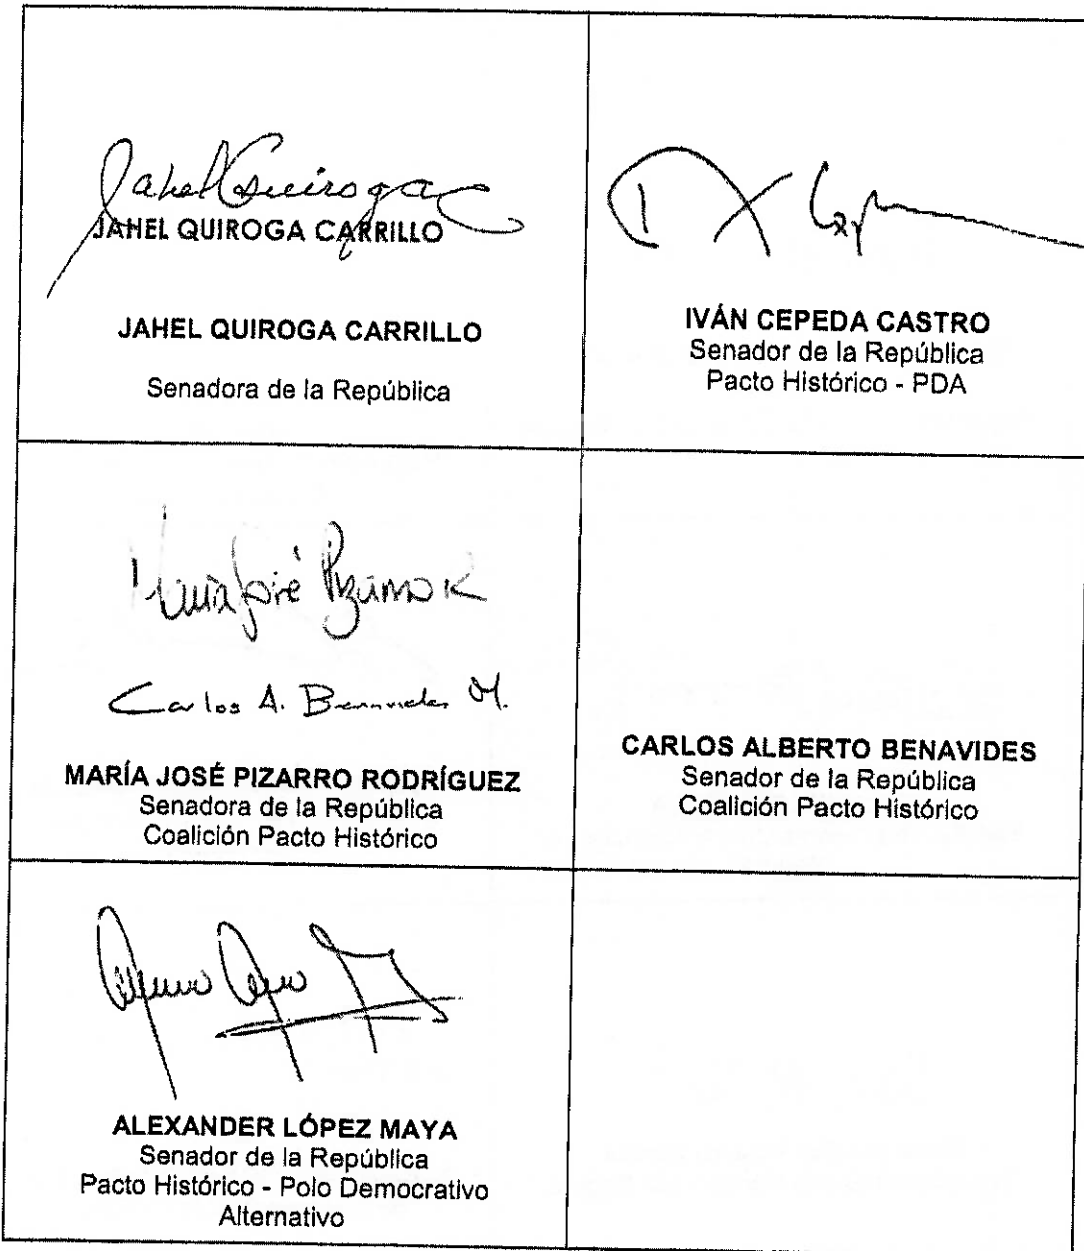 Jahel Quiroga C
JAHEL QUIROGA CARRILLO
JAHEL QUIROGA CARRILLO
Senadora de la República
IVÁN CEPEDA CASTRO
Senador de la República
Pacto Histórico - PDA
María José Pizarro R
Carlos A. Benavides M.
MARÍA JOSÉ PIZARRO RODRÍGUEZ
Senadora de la República
Coalición Pacto Histórico
CARLOS ALBERTO BENAVIDES
Senador de la República
Coalición Pacto Histórico
ALEXANDER LÓPEZ MAYA
Senador de la República
Pacto Histórico - Polo Democrativo
Alternativo